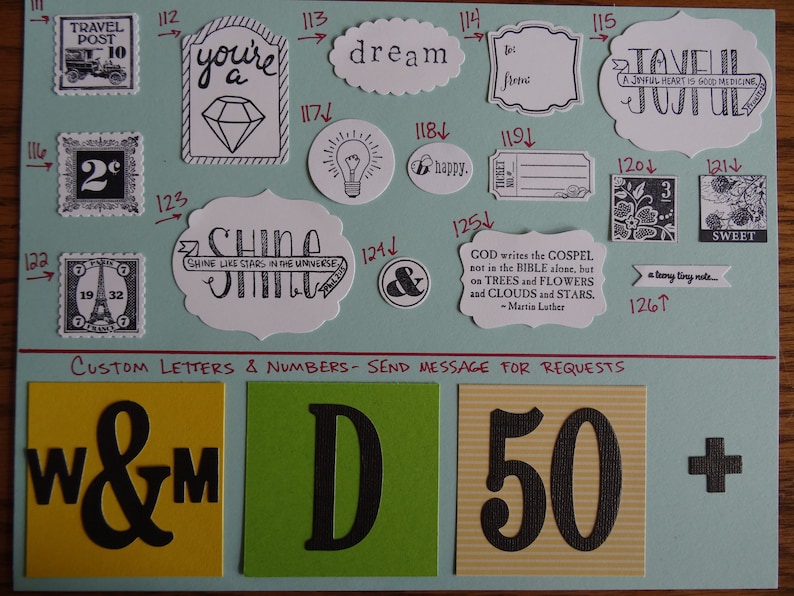 111
TRAVEL
POST
10
112
you're
a
113
dream
114
to:
from:
115
JOYFUL
A JOYFUL HEART IS GOOD MEDICINE.
116
2¢
117
118
b happy.
119
TICKET
NO.
120
3
121
SWEET
122
PARIS
7 7
1932
7 7
FRANCE
123
SHINE
SHINE LIKE STARS IN THE UNIVERSE.
PHIL 2:15
124
&
125
GOD writes the GOSPEL
not in the BIBLE alone, but
on TREES and FLOWERS
and CLOUDS and STARS.
~ Martin Luther
a teeny tiny note...
126
CUSTOM LETTERS & NUMBERS- SEND MESSAGE FOR REQUESTS
W&M
D
50
+